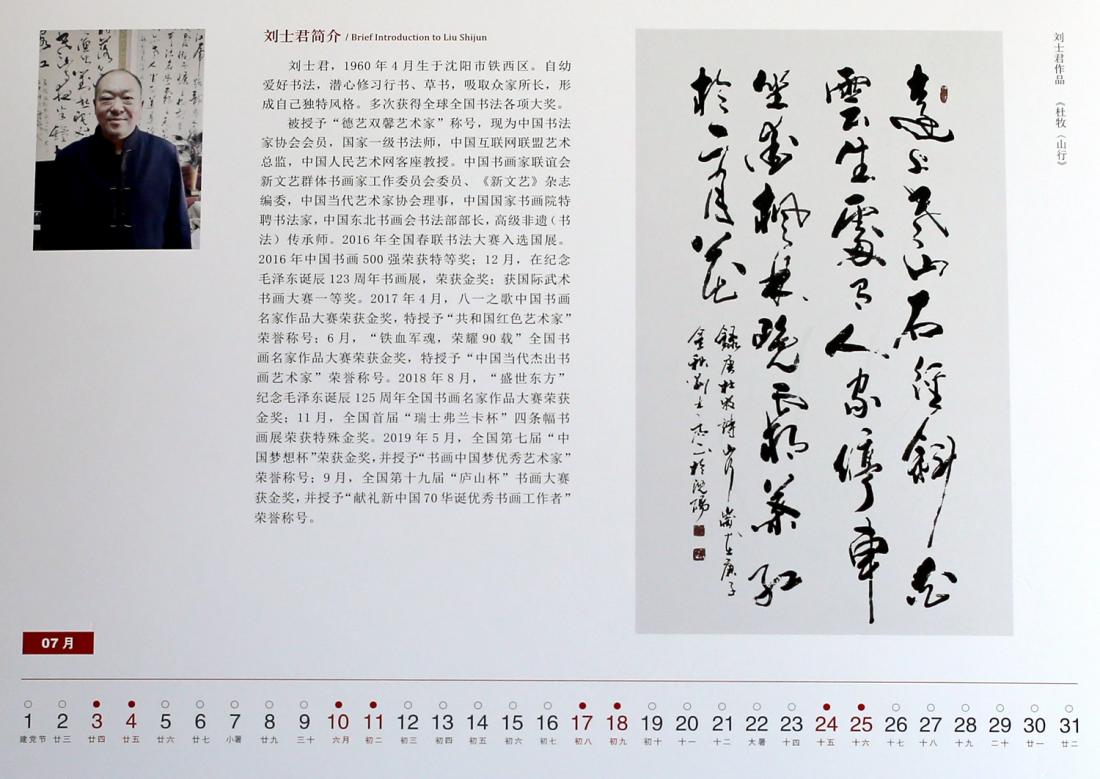 刘士君简介 / Brief Introduction to Liu Shijun
刘士君，1960 年 4 月生于沈阳市铁西区。自幼
爱好书法，潜心修习行书、草书，吸取众家所长，形
成自己独特风格。多次获得全球全国书法各项大奖。
被授予“德艺双馨艺术家”称号，现为中国书法
家协会会员，国家一级书法师，中国互联网联盟艺术
总监，中国人民艺术网客座教授。中国书画家联谊会
新文艺群体书画家工作委员会委员、《新文艺》杂志
编委，中国当代艺术家协会理事，中国国家书画院特
聘书法家，中国东北书画会书法部部长，高级非遗（书
法）传承师。2016 年全国春联书法大赛入选国展。
2016 年中国书画 500 强荣获特等奖；12 月，在纪念
毛泽东诞辰 123 周年书画展，荣获金奖；获国际武术
书画大赛一等奖。2017 年 4 月，八一之歌中国书画
名家作品大赛荣获金奖，特授予“共和国红色艺术家”
荣誉称号；6 月，“铁血军魂，荣耀 90 载”全国书
画名家作品大赛荣获金奖，特授予“中国当代杰出书
画艺术家”荣誉称号。2018 年 8 月，“盛世东方”
纪念毛泽东诞辰 125 周年全国书画名家作品大赛荣获
金奖；11 月，全国首届“瑞士弗兰卡杯”四条幅书
画展荣获特殊金奖。2019 年 5 月，全国第七届“中
国梦想杯”荣获金奖，并授予“书画中国梦优秀艺术家”
荣誉称号；9 月，全国第十九届“庐山杯”书画大赛
获金奖，并授予“献礼新中国 70 华诞优秀书画工作者”
荣誉称号。
遠上寒山石徑斜白
雲生處有人家停車
坐愛楓林晚霜葉紅
於二月花
錄唐杜牧詩山行歲在庚子
金秋劉士於瀋陽
刘士君作品 《杜牧〈山行》
07 月
1 2 3 4 5 6 7 8 9 10 11 12 13 14 15 16 17 18 19 20 21 22 23 24 25 26 27 28 29 30 31
建党节 廿三 廿四 廿五 廿六 廿七 小暑 廿九 三十 六月 初二 初三 初四 初五 初六 初七 初八 初九 初十 十一 十二 大暑 十四 十五 十六 十七 十八 十九 二十 廿一 廿二